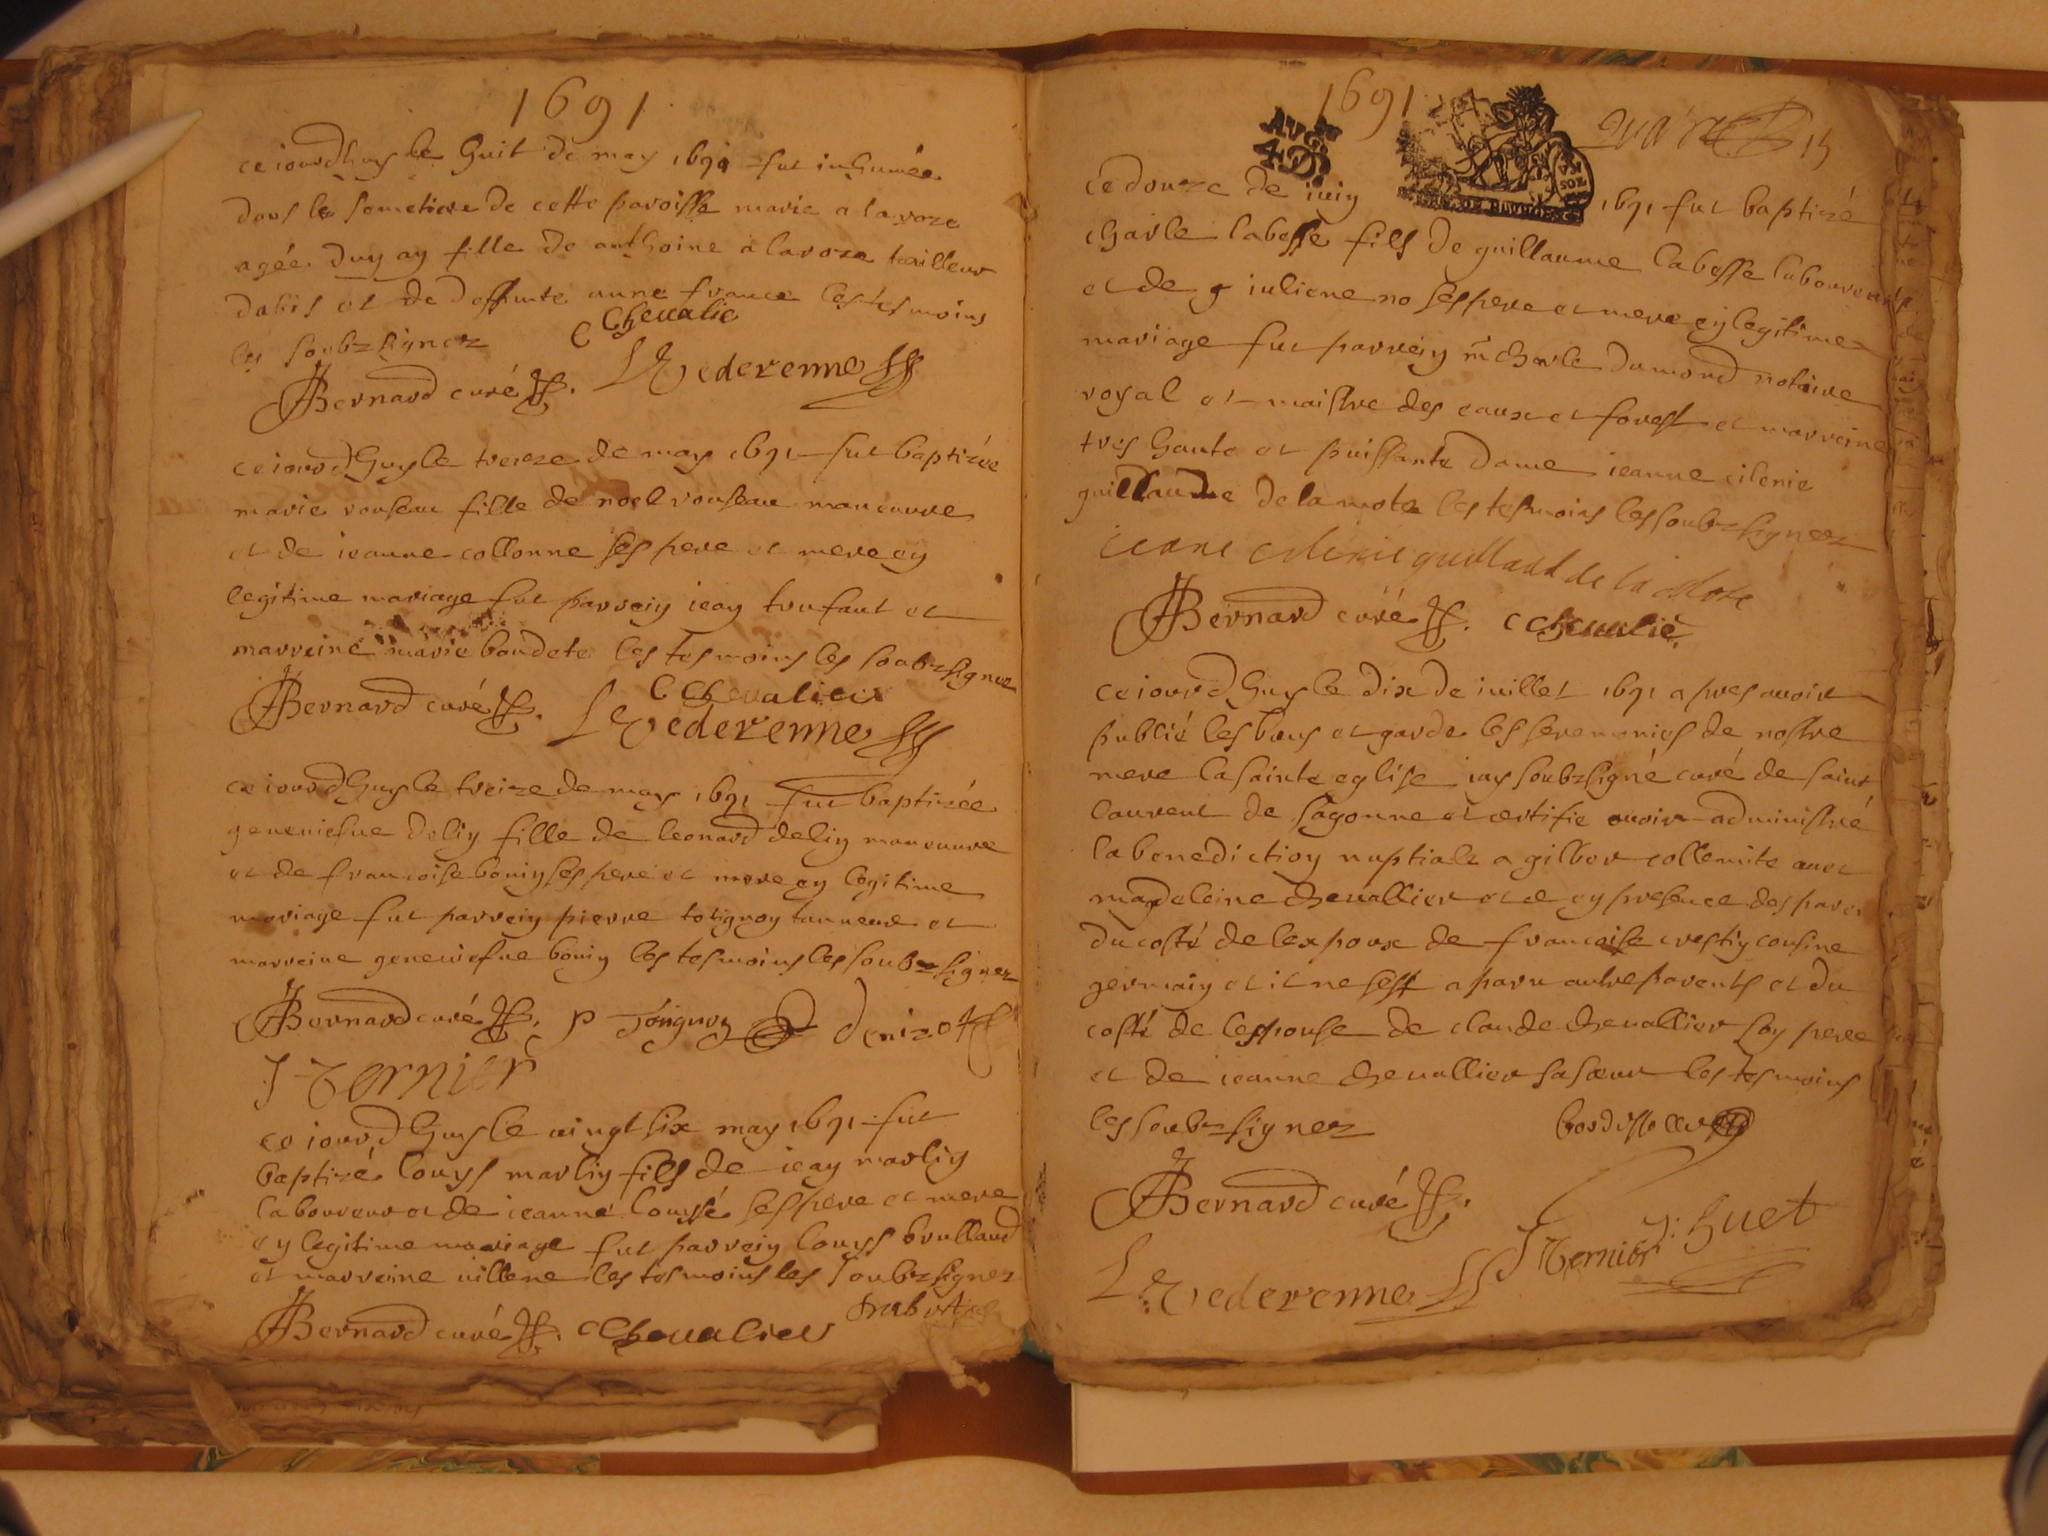 1691
ce iourdhuy le huit de may 1691 fut inhumée
dans le semetiere de cette paroisse marie a la roze
agée duy ay fille de anthoine a la roze tailleur
dabis et de deffunte anne france les tesmoins
les soubzsignez
C Chevalie
Bernard curé
L Vederenne
ce iourdhuy le treze de may 1691 fut baptizée
marie rouseau fille de noel rouseau maneuvre
et de ieanne collonne ses pere et mere ey
legitime mariage fut parreiy ieay trufaut et
marreine marie baudete les tesmoins les soubzsignez
C Chevalier
Bernard curé
L Vederenne
ce iourdhuy le treize de may 1691 fut baptizée
geneuiefue deliy fille de leonard deliy maneuvre
et de francoise boniy ses pere et mere ey legitime
mariage fut parreiy pierre toignoy tanneur et
marreine geneuiefue boniy les tesmoins les soubzsignez
Bernard curé P Toignoy Denizot
J Vernier
ce iourdhuy le uingt six may 1691 fut
baptizé louys marliy fils de ieay marliy
laboureur et de ieanne ses pere et mere
ey legitime mariage fut parreiy louys brulland
et marreine uillene les tesmoins les soubzsignez
Bernard curé C Chevalier
1691
AVG
4 D
VN
SOL
ce douze de iuiy 1691 fut baptizé
charle labesse fils de guillaume labesse laboureur
et de iuliene no ses pere et mere ey legitime
mariage fut parreiy mᵉ charle dumond notaire
royal et maistre des eaux et forest et marreine
tres haute et puissante dame ieanne cilenie
guillaude de la mote les tesmoins les soubzsignez
ieane cilenie guillaud de la Mote
Bernard curé C Chevalié
ce iourdhuy le dix de iuillet 1691 apres avoir
publié les bans et garde les seremonies de nostre
mere la sainte eglise iay soubzsigné curé de saint
laurent de sagonne et certifie avoir administré
la benedictioy nuptiale a gilber collemite avec
madeleine chevallier et ce ey presence des parens
du costé de lexpoux de francoise crestiy cousine
germaiy et il ne sest aparu autre parents et du
costé de lespouse de claude chevallier soy pere
et de ieanne chevallier sa sœur les tesmoins
les soubzsignez
Bernard curé
J Vernier J: huet
L Vederenne